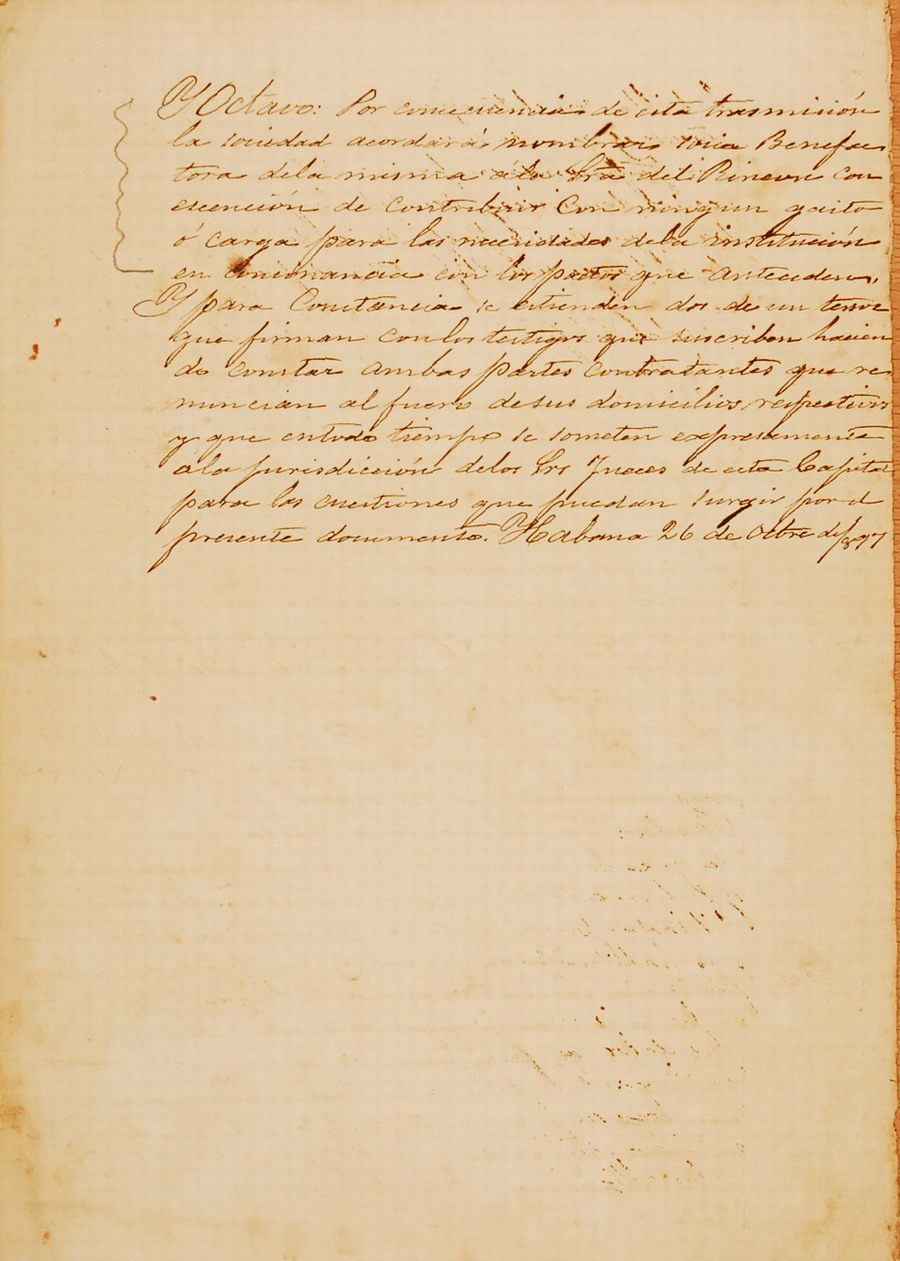 Y Octavo: Por consecuencia de esta trasmisión
la sociedad acordará nombrar socia Benefac
tora dela misma á la Sra del Rincon con
escención de contribuir con ningun gasto
ó carga para las necesidades dela institución
en consonancia con los pactos que anteceden.
Y para Constancia se estienden dos de un tenor
que firman con los testigos que suscriben hacien
do constar ambas partes contratantes que re
nuncian al fuero de sus domicilios respectivos
y que en todo tiempo se someten expresamente
á la jurisdicción delos Srs Jueces de esta Capital
para las cuestiones que puedan surgir por el
presente documento. Habana 26 de Octbre de 1897